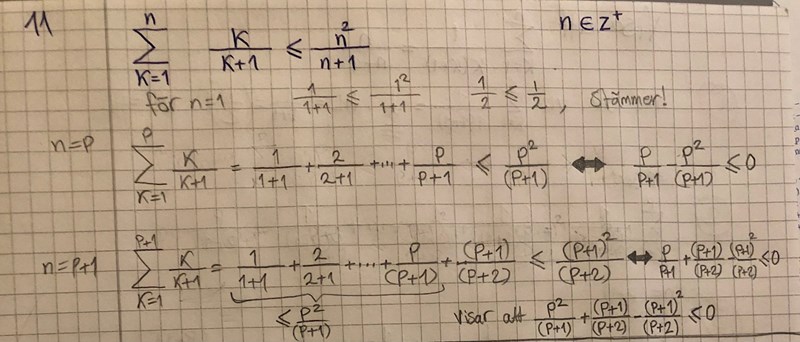 11 \sum_{K=1}^{n} \frac{K}{K+1} \leq \frac{n^2}{n+1} n \in Z^+
för n=1 \frac{1}{1+1} \leq \frac{1^2}{1+1} \frac{1}{2} \leq \frac{1}{2}, Stämmer!
n=p \sum_{K=1}^{p} \frac{K}{K+1} = \frac{1}{1+1} + \frac{2}{2+1} + \cdots + \frac{p}{p+1} \leq \frac{p^2}{(p+1)} \leftrightarrow \frac{p}{p+1} - \frac{p^2}{(p+1)} \leq 0
n=p+1 \sum_{K=1}^{p+1} \frac{K}{K+1} = \frac{1}{1+1} + \frac{2}{2+1} + \cdots + \frac{p}{(p+1)} + \frac{(p+1)}{(p+2)} \leq \frac{(p+1)^2}{(p+2)} \leftrightarrow \frac{p}{p+1} + \frac{(p+1)}{(p+2)} - \frac{(p+1)^2}{(p+2)} \leq 0
\leq \frac{p^2}{(p+1)} Visar att \frac{p^2}{(p+1)} + \frac{(p+1)}{(p+2)} - \frac{(p+1)^2}{(p+2)} \leq 0